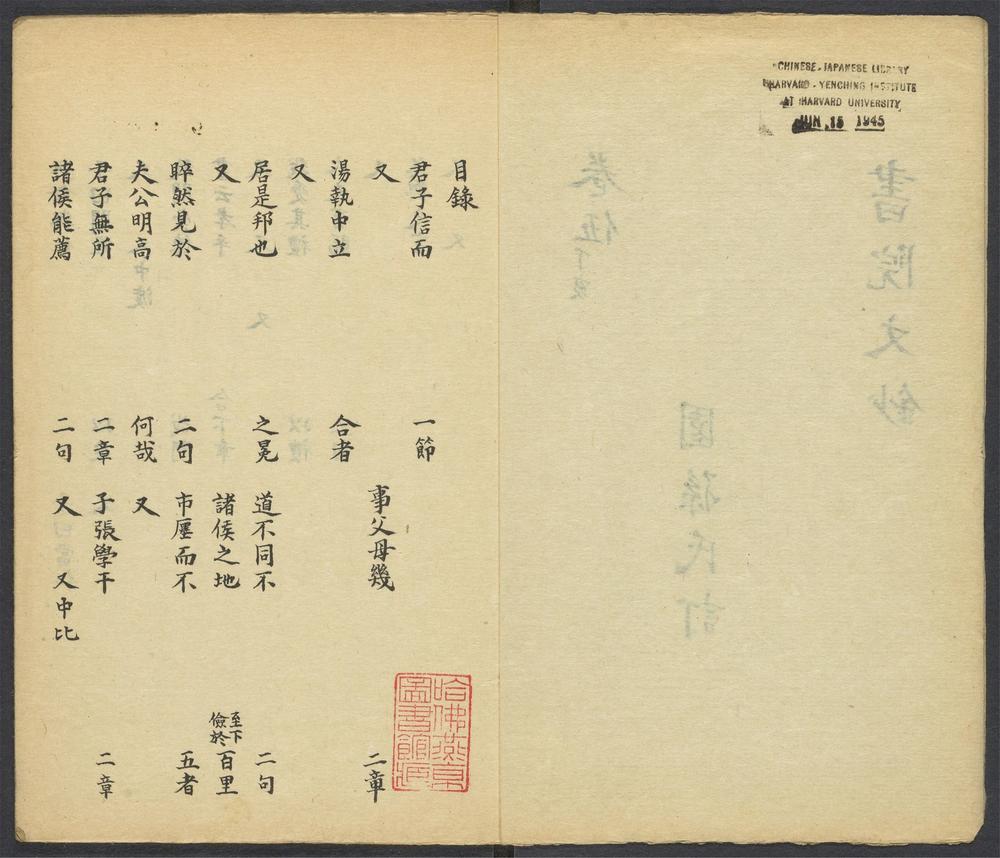 CHINESE-JAPANESE LIBRARY
HARVARD-YENCHING INSTITUTE
AT HARVARD UNIVERSITY
JUN 15 1945
目錄
君子信而 一節
又 事父母幾 二章
湯執中立 合者
又
居是邦也 之冕 道不同不 二句
又 諸侯之地 至下儉於百里
睟然見於 二句 市廛而不 五者
夫公明高 何哉 又
君子無所 二章 子張學干 二章
諸侯能薦 二句 又 又中比
哈佛燕京
圖書館藏